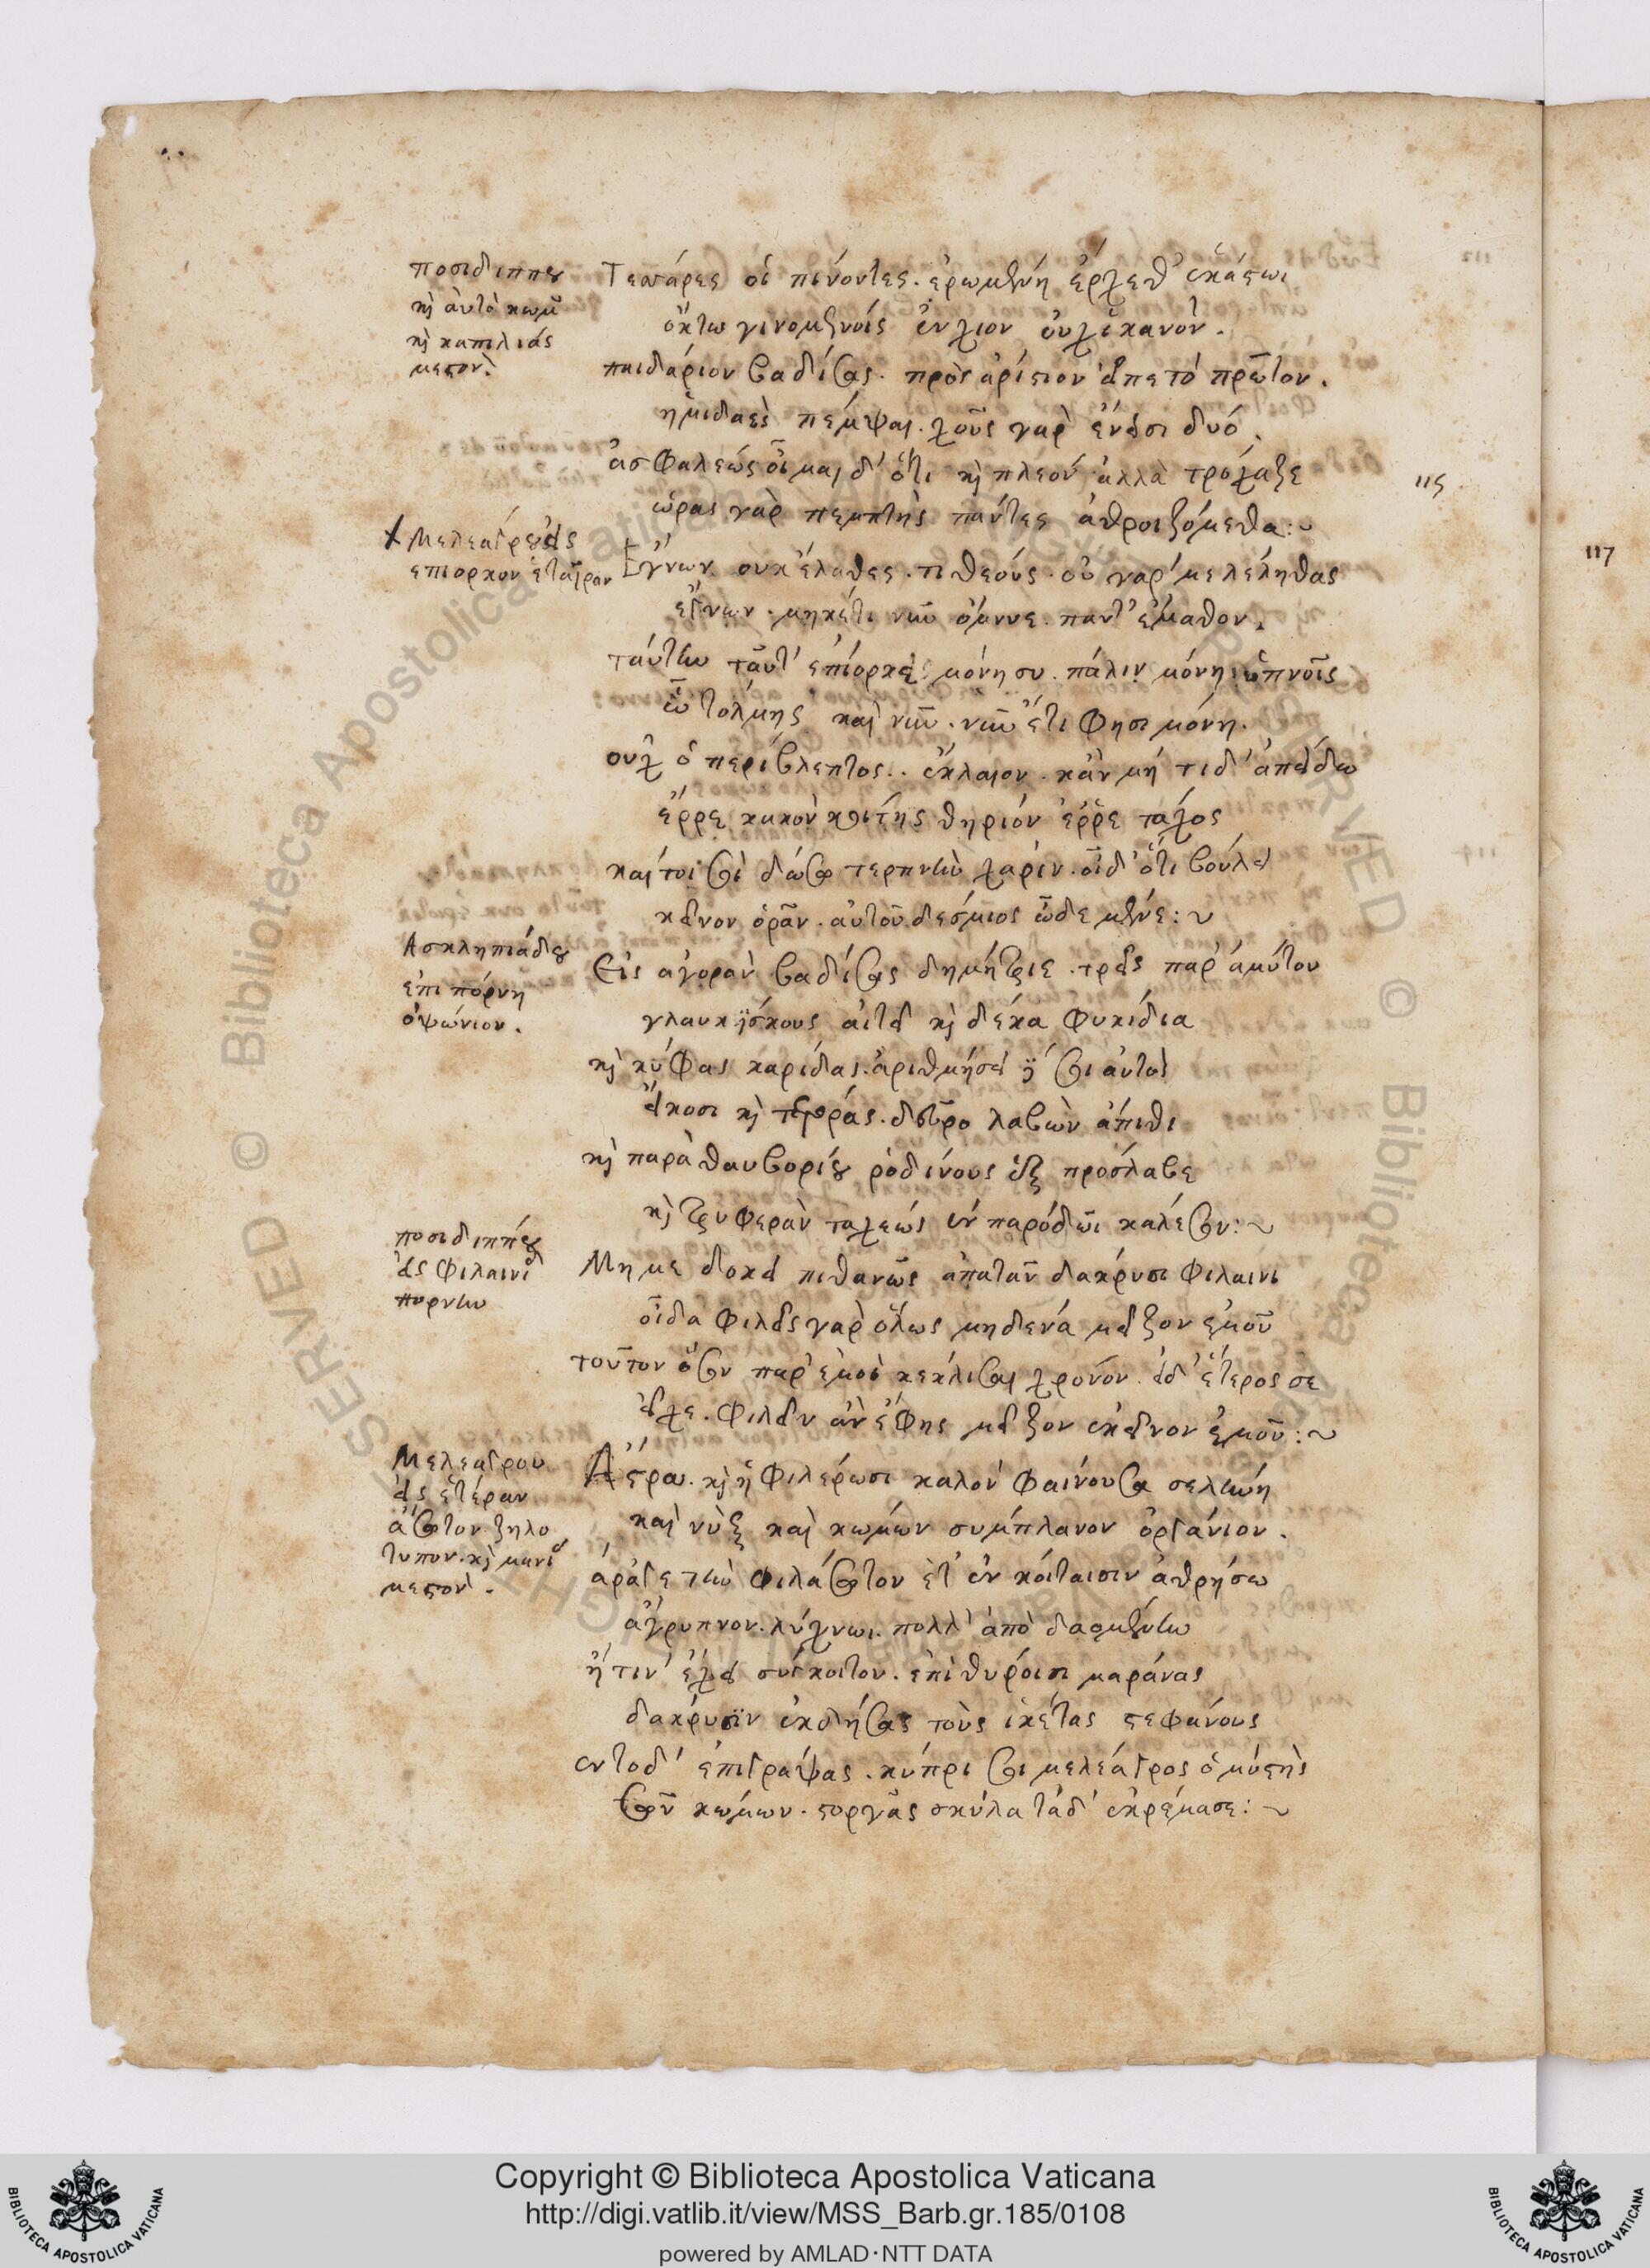 ποσιδιππου
κὶ ἀυτὸ κωμ
κὶ καπιλιάς
μεστον.
Τεσσάρες οἱ πινοντες. ἐρωμένη ἐρχεθ' ἑκάστωι
ὀκτω γινομένοίς ἑν χιον ουχ ἱκανόν.
παιδάριον βαδίσας. πρὸς ἀρίστιον εἰπε τό πρῶτον.
ἡμιδαες πέμψαι. χοῦς γαρ ἔνεισι δυό.
ἀσφαλεώς οἶμαι δ' ὅτι κὶ πλεόν ἀλλὰ τροχαζε
ὥρας γαρ πεμπτης πάντες ἀθροιζόμεθα:~
115
117
Μελεαγρου εἰς
επιορκον ἑταίραν
Εγνων ουκ έλαθες. τι θεούς. ου γαρ με λέληθας
εγνων. μηκέτι νῦν ὄμνυε. παντ' έμαθον.
ταύτην ταῦτ' επίορκε μόνη συ. πάλιν μόνη ὑπνοῖς
ὦ τόλμης καὶ νῦν. νῦν ἔτι φησι μόνη.
ουχ ὁ περίβλεπτος.. κλαιον. κἀν μή τι δ' ἀπείδω
έρρε κακὸν κοίτης θηρίον έρρε τάχος
καίτοι σοὶ δώσω τερπνὴν χαρίν. οἶδ' ὅτι βούλει
κεῖνον ὁρᾶν. αὐτοῦ δεσμιος ὧδε μένε:~
Ασκληπιάδου
ἐπι πόρνη
ὀψώνιον.
Εἰς αγοραν βαδίσας δημήτριε. τρεῖς παρ' ἀμύτου
γλαυκίσκους αἴτει κὶ δέκα φυκίδια
κὶ κύφας καρίδας. ἀριθμήσει σοι ἀυτὸς
εἴκοσι κὶ τέτορας. δεῦρο λαβὼν ἀπιθι
κὶ παρὰ θαυβορίου ῥοδίνους ἓξ προσλαβε
κὶ τρυφερὰν ταχεώς ἐν παρόδωι καλέσον:~
ποσιδιππου
εἰς φιλαινιδ
πορνην
Μη με δοκει πιθανῶς ἀπατᾶν δακρυσι φιλαινι
οἶδα φιλεῖς γαρ ὅλως μηδενά μεῖζον εμοῦ
τοῦτον ὅσον παρ' εμοὶ κεκλισαι χρόνον. εἰ δ' ἕτερος σε
εἶχε. φιλεῖν ἀν ἔφης μεῖζον εκεῖνον ἐμοῦ:~
Μελεαγρου
εἰς ἑτέραν
ἄσωτον. ζηλο
τυπον. κὶ μανι
μεστον.
Αστρα. κὶ ἡ φιλερωσι καλον φαίνουσα σελήνη
καὶ νὺξ καὶ κωμων συμπλανον ὀργάνιον.
ἀράγε την φιλάσωτον ετ' εν κοίταισιν ἀθρησω
αγρυπνον. λύχνωι. πολλ' ἀπο δαομένην
ἤ τιν' έχει συγκοιτον. επι θυροισι μαράνας
δακρυσιν εκδησας τοὺς ἱκέτας στεφανους
εν τοδ' επιγραψας. κύπρι σοι μελέαγρος ὁ μύστης
σων κωμων. στοργᾶς σκυλα ταδ' εκρέμασε:~
Copyright © Biblioteca Apostolica Vaticana
http://digi.vatlib.it/view/MSS_Barb.gr.185/0108
powered by AMLAD·NTT DATA